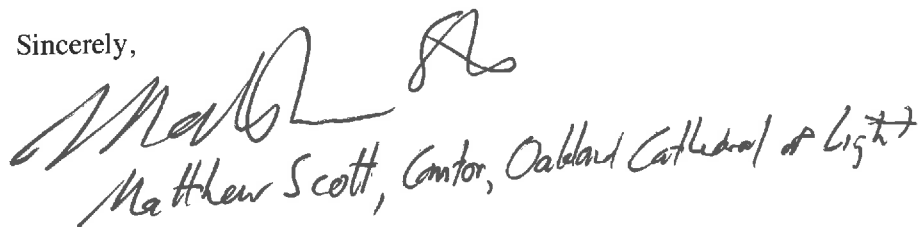 Sincerely,
Matthew Scott, Cantor, Oakland Cathedral of Light